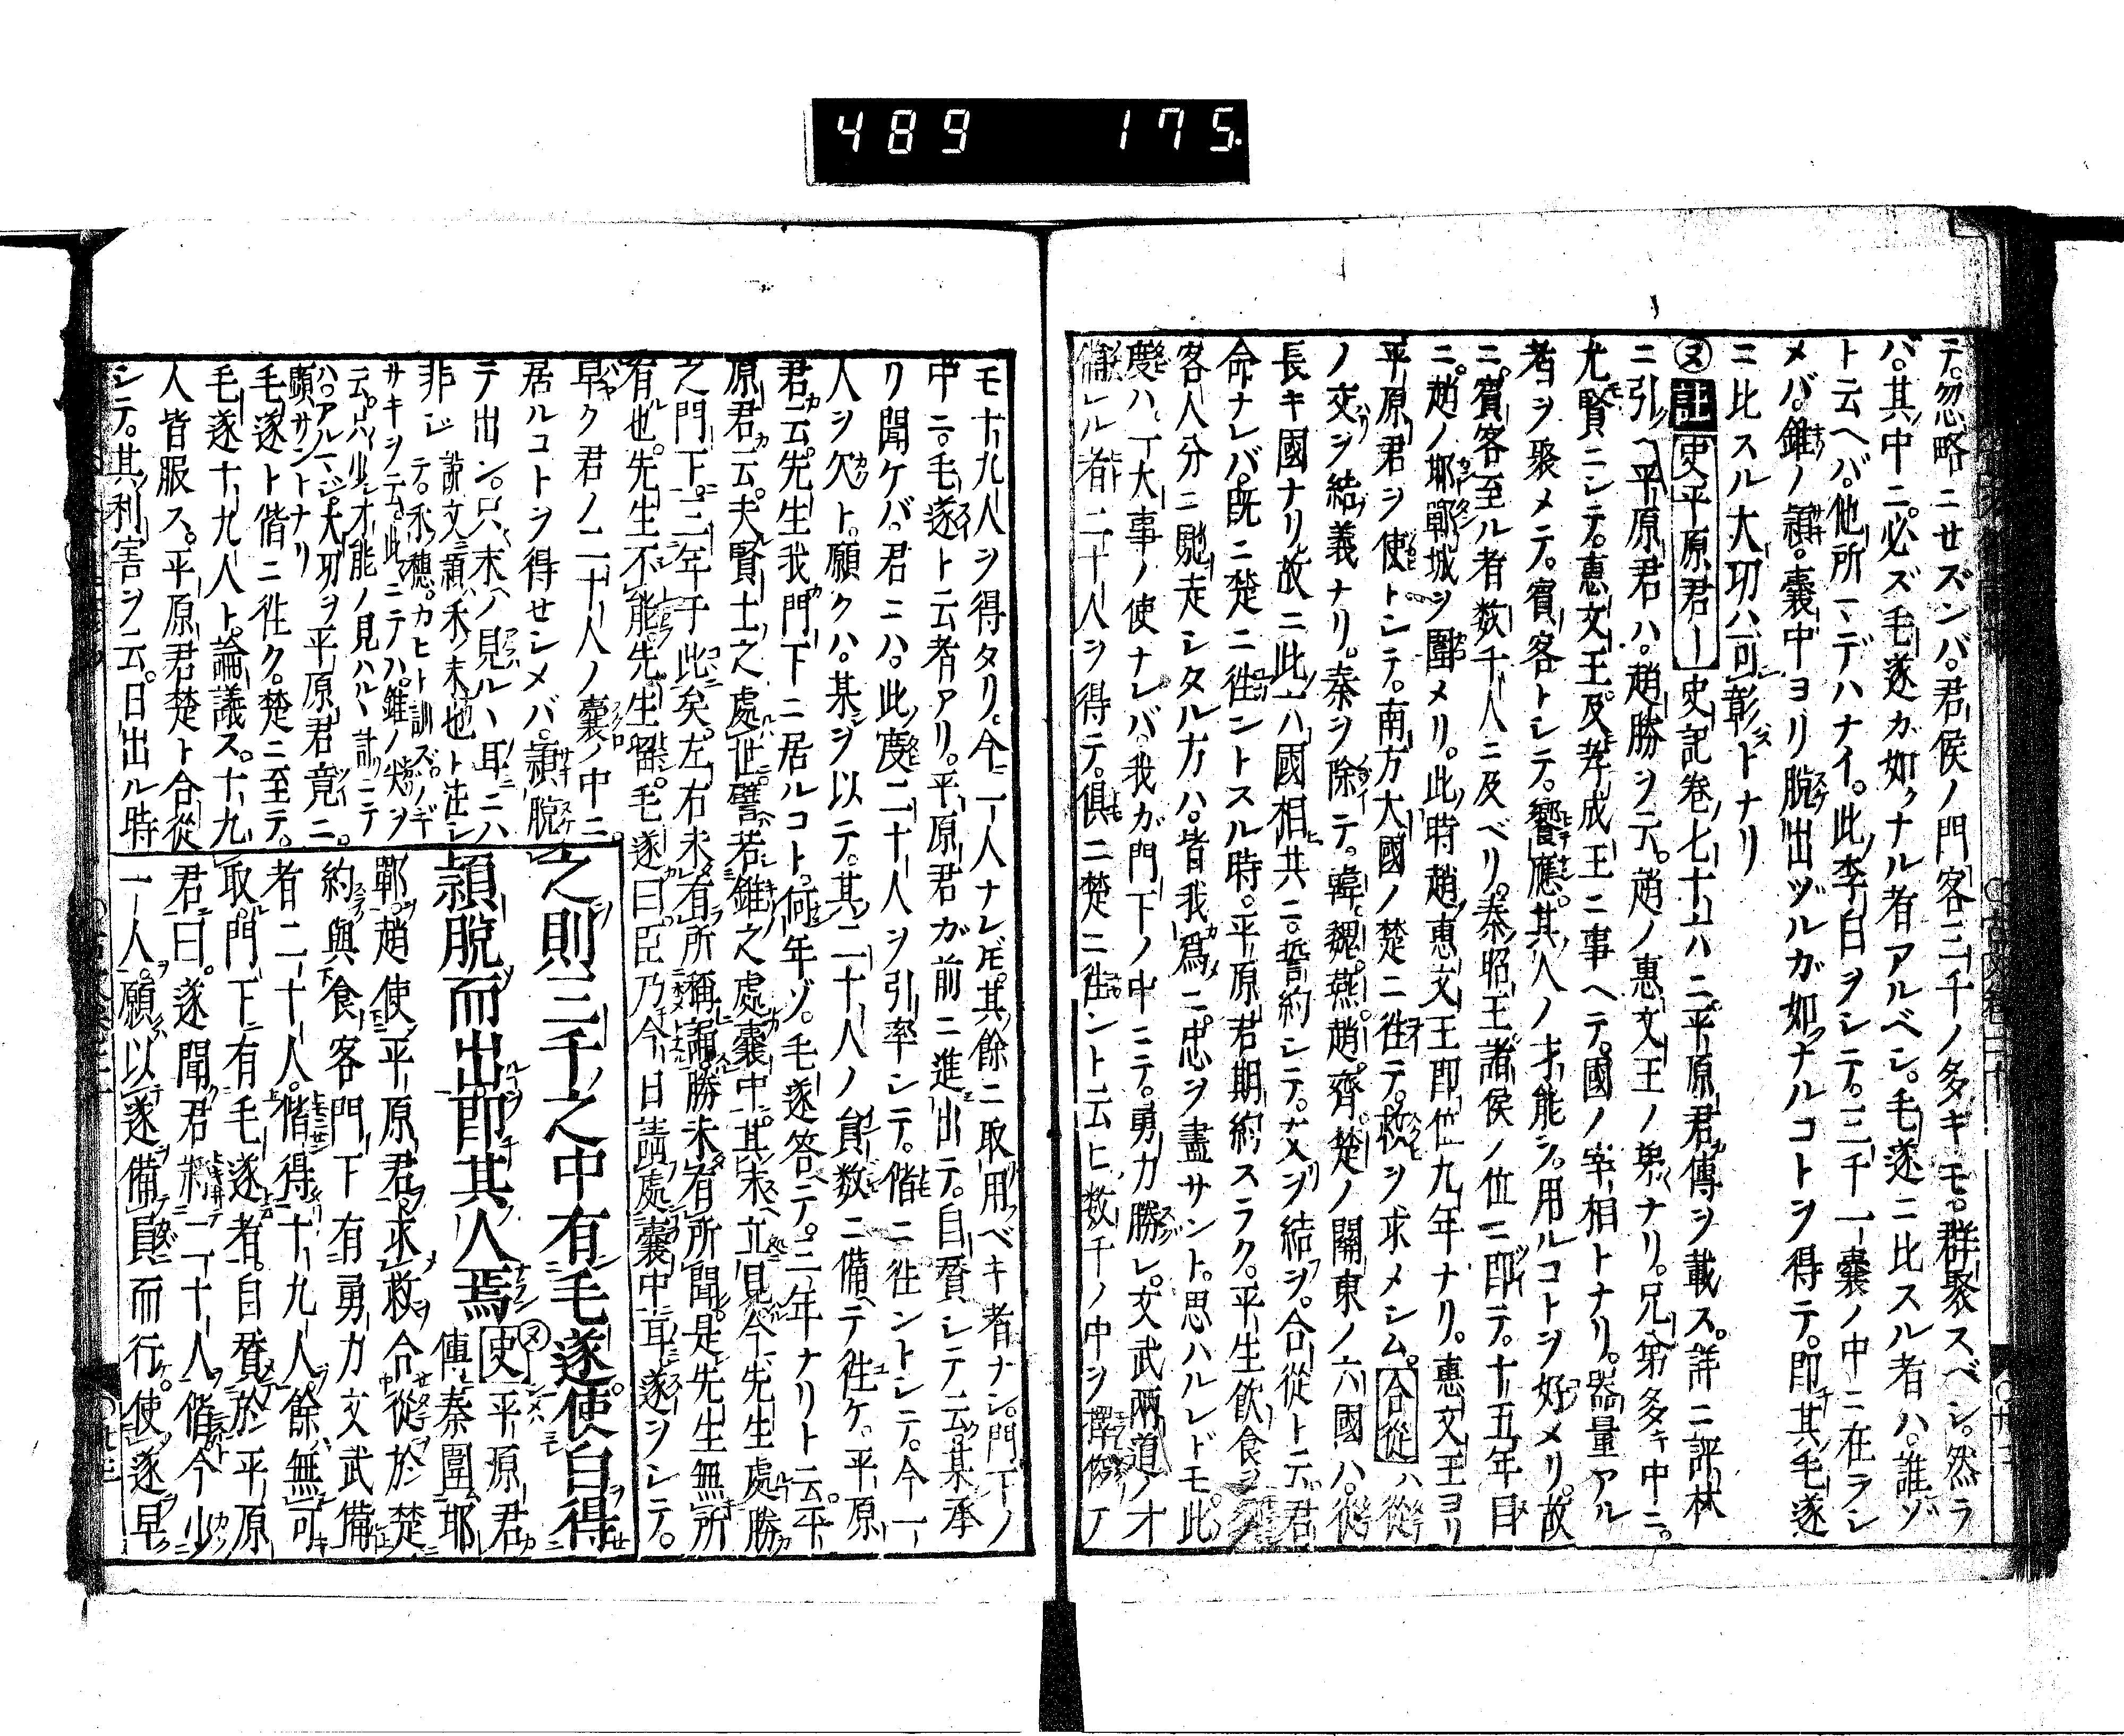 489 175.
テ。忽略ニセズンバ。君侯ノ門客三千ノ多キモ。群聚スベシ。然ラ
バ。其中ニ。必ズ毛遂カ如クナル者アルベシ。毛遂ニ比スル者ハ。誰ゾ
ト云ヘバ。他所ーデハナイ。此李白ヲシテ。三千一囊ノ中ニ在ラシ
メバ。錐ノ頴。囊中ヨリ脱出ヅルガ如クナルコトヲ得テ。即其毛遂
ニ比スル大功ハ可彰トナリ
ヌ 註 史平原君ー史記巻七十六ニ。平原君傳ヲ載ス。詳ニ評林
ニ引ヘ平原君ハ。趙勝ヲ云。趙ノ惠文王ノ弟ナリ。兄弟多キ中ニ。
尤賢ニシテ。惠文王及孝成王ニ事ヘテ。國ノ宰相トナリ。器量アル
者ヲ聚メテ。賓客トシテ。饗應。其人ノ才能ヲ。用ルコトヲ好メリ。故
ニ。賓客至ル者数千人ニ及ベリ。秦昭王諸侯ノ位ニ即テ。十五年目
ニ。趙ノ邯鄲城ヲ圍メリ。此時趙惠文王即位九年ナリ。惠文王ヨリ
平原君ヲ使トシテ。南方大國ノ楚ニ往テ。救ヲ求メシム。合從ハ從
ノ交ヲ結義ナリ。秦ヲ除テ。韓。魏。燕。趙。齊。楚ノ關東ノ六國ハ。從
長キ國ナリ故ニ此六國相共ニ。誓約シテ。交ヲ結ヲ。合從ト云。君
命ナレバ。既ニ楚ニ往ントスル時。平原君期約スラク。平生飲食ヲ
客人分ニ馳走シタル方ハ。皆我爲ニ。忠ヲ盡サント。思ハルレドモ。此
度ハ。一大事ノ使ナレバ。我カ門下ノ中ニテ。勇力勝レ。文武兩道ノ才
備レル者二十人ヲ得テ。俱ニ楚ニ往ント云ヒ数千ノ中ヲ擇テ
モ十九人ヲ得タリ。今一人ナレ𪜈。其餘ニ取用ベキ者ナシ。門下ノ
中ニ。毛遂ト云者アリ。平原君ガ前ニ進出テ。自賛シテ云。某承
リ聞ケバ。君ニハ。此度二十人ヲ引率シテ。偕ニ往ントシテ。今一
人ヲ欠ト。願クハ。某ヲ以テ。其二十人ノ員数ニ備テ往ケ。平原
君云。先生我門下ニ居ルコト。何年ゾ。毛遂答テ。三年ナリト云。平
原君云。夫賢士之處世。譬若錐之處囊中。其末立見。今先生處勝
之門下。三年于此矣。左右未有所稱誦。勝未有所聞。是先生無所
有也。先生不能。先生留。毛遂曰。臣乃今日請處囊中耳。遂ヲシテ。
早ク君ノ二十人ノ囊ノ中ニ。
居ルコトヲ得セシメバ。頴脱
テ出ン。只末ノ見ルヽ耳ニハ
非シ 說文ニ頴ハ禾ノ末也ト註シ
テ。禾穗。カヒト訓ズ。ノギ
サキヲ云。此ニテハ。錐ノ尖ヲ
云。只少シ才能ノ見ハルヽ計ニテ
ハ。アルマジ。大功ヲ平原君竟ニ。
顯サントナリ
毛遂ト偕ニ往ク。楚ニ至テ。
毛遂十九人ト。論議ス。十九
人皆服ス。平原君楚ト合從
シテ。其利害ヲ云。日出ル時
之則三千之中有毛遂使自得
頴脱而出即其人焉 ヌ 史平原君
傳秦圍邯
鄲。趙使平原君求救合從於楚
約與食客門下有勇力文武備
者二十人。偕得十九人。餘無可
取。門下有毛遂者。自賛於平原
君曰。遂聞君將二十人偕。今少
一人。願以遂備員而行。使遂早